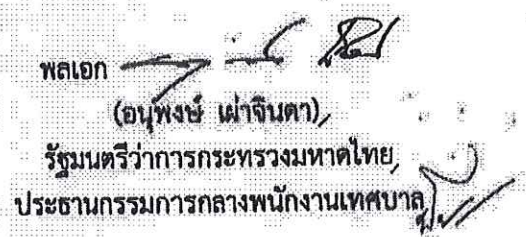 พลเอก
(อนุพงษ์ เผ่าจินดา)
รัฐมนตรีว่าการกระทรวงมหาดไทย
ประธานกรรมการกลางพนักงานเทศบาล